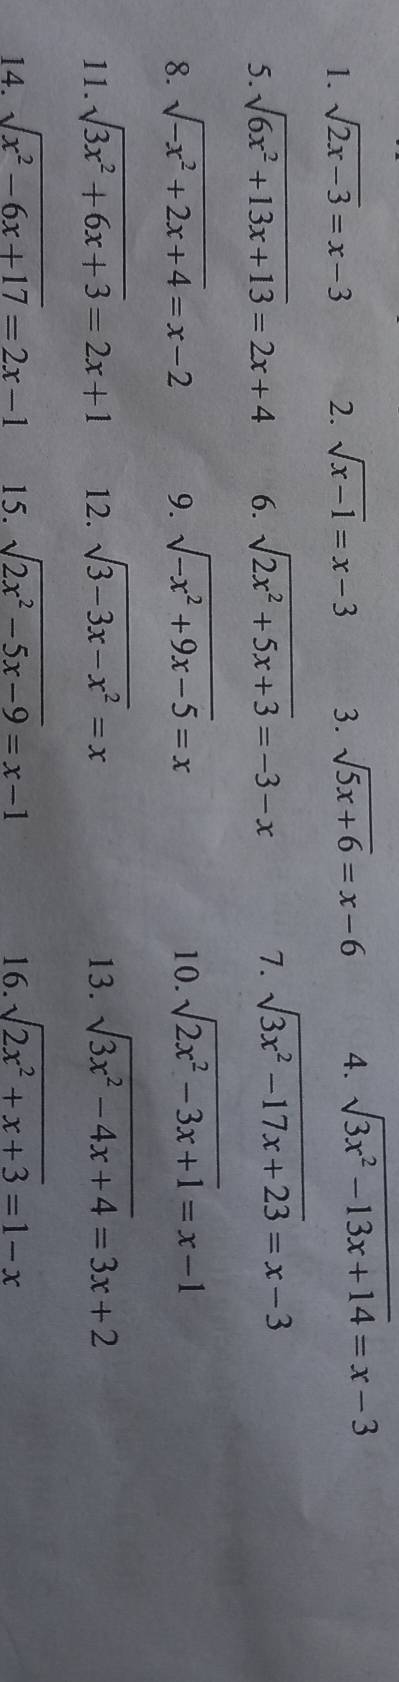 1. √(2x−3) = x−3 2. √(x−1) = x−3 3. √(5x+6) = x−6 4. √(3x²−13x+14) = x−3
5. √(6x²+13x+13) = 2x+4 6. √(2x²+5x+3) = −3−x 7. √(3x²−17x+23) = x−3
8. √(−x²+2x+4) = x−2 9. √(−x²+9x−5) = x 10. √(2x²−3x+1) = x−1
11. √(3x²+6x+3) = 2x+1 12. √(3−3x−x²) = x 13. √(3x²−4x+4) = 3x+2
14. √(x²−6x+17) = 2x−1 15. √(2x²−5x−9) = x−1 16. √(2x²+x+3) = 1−x